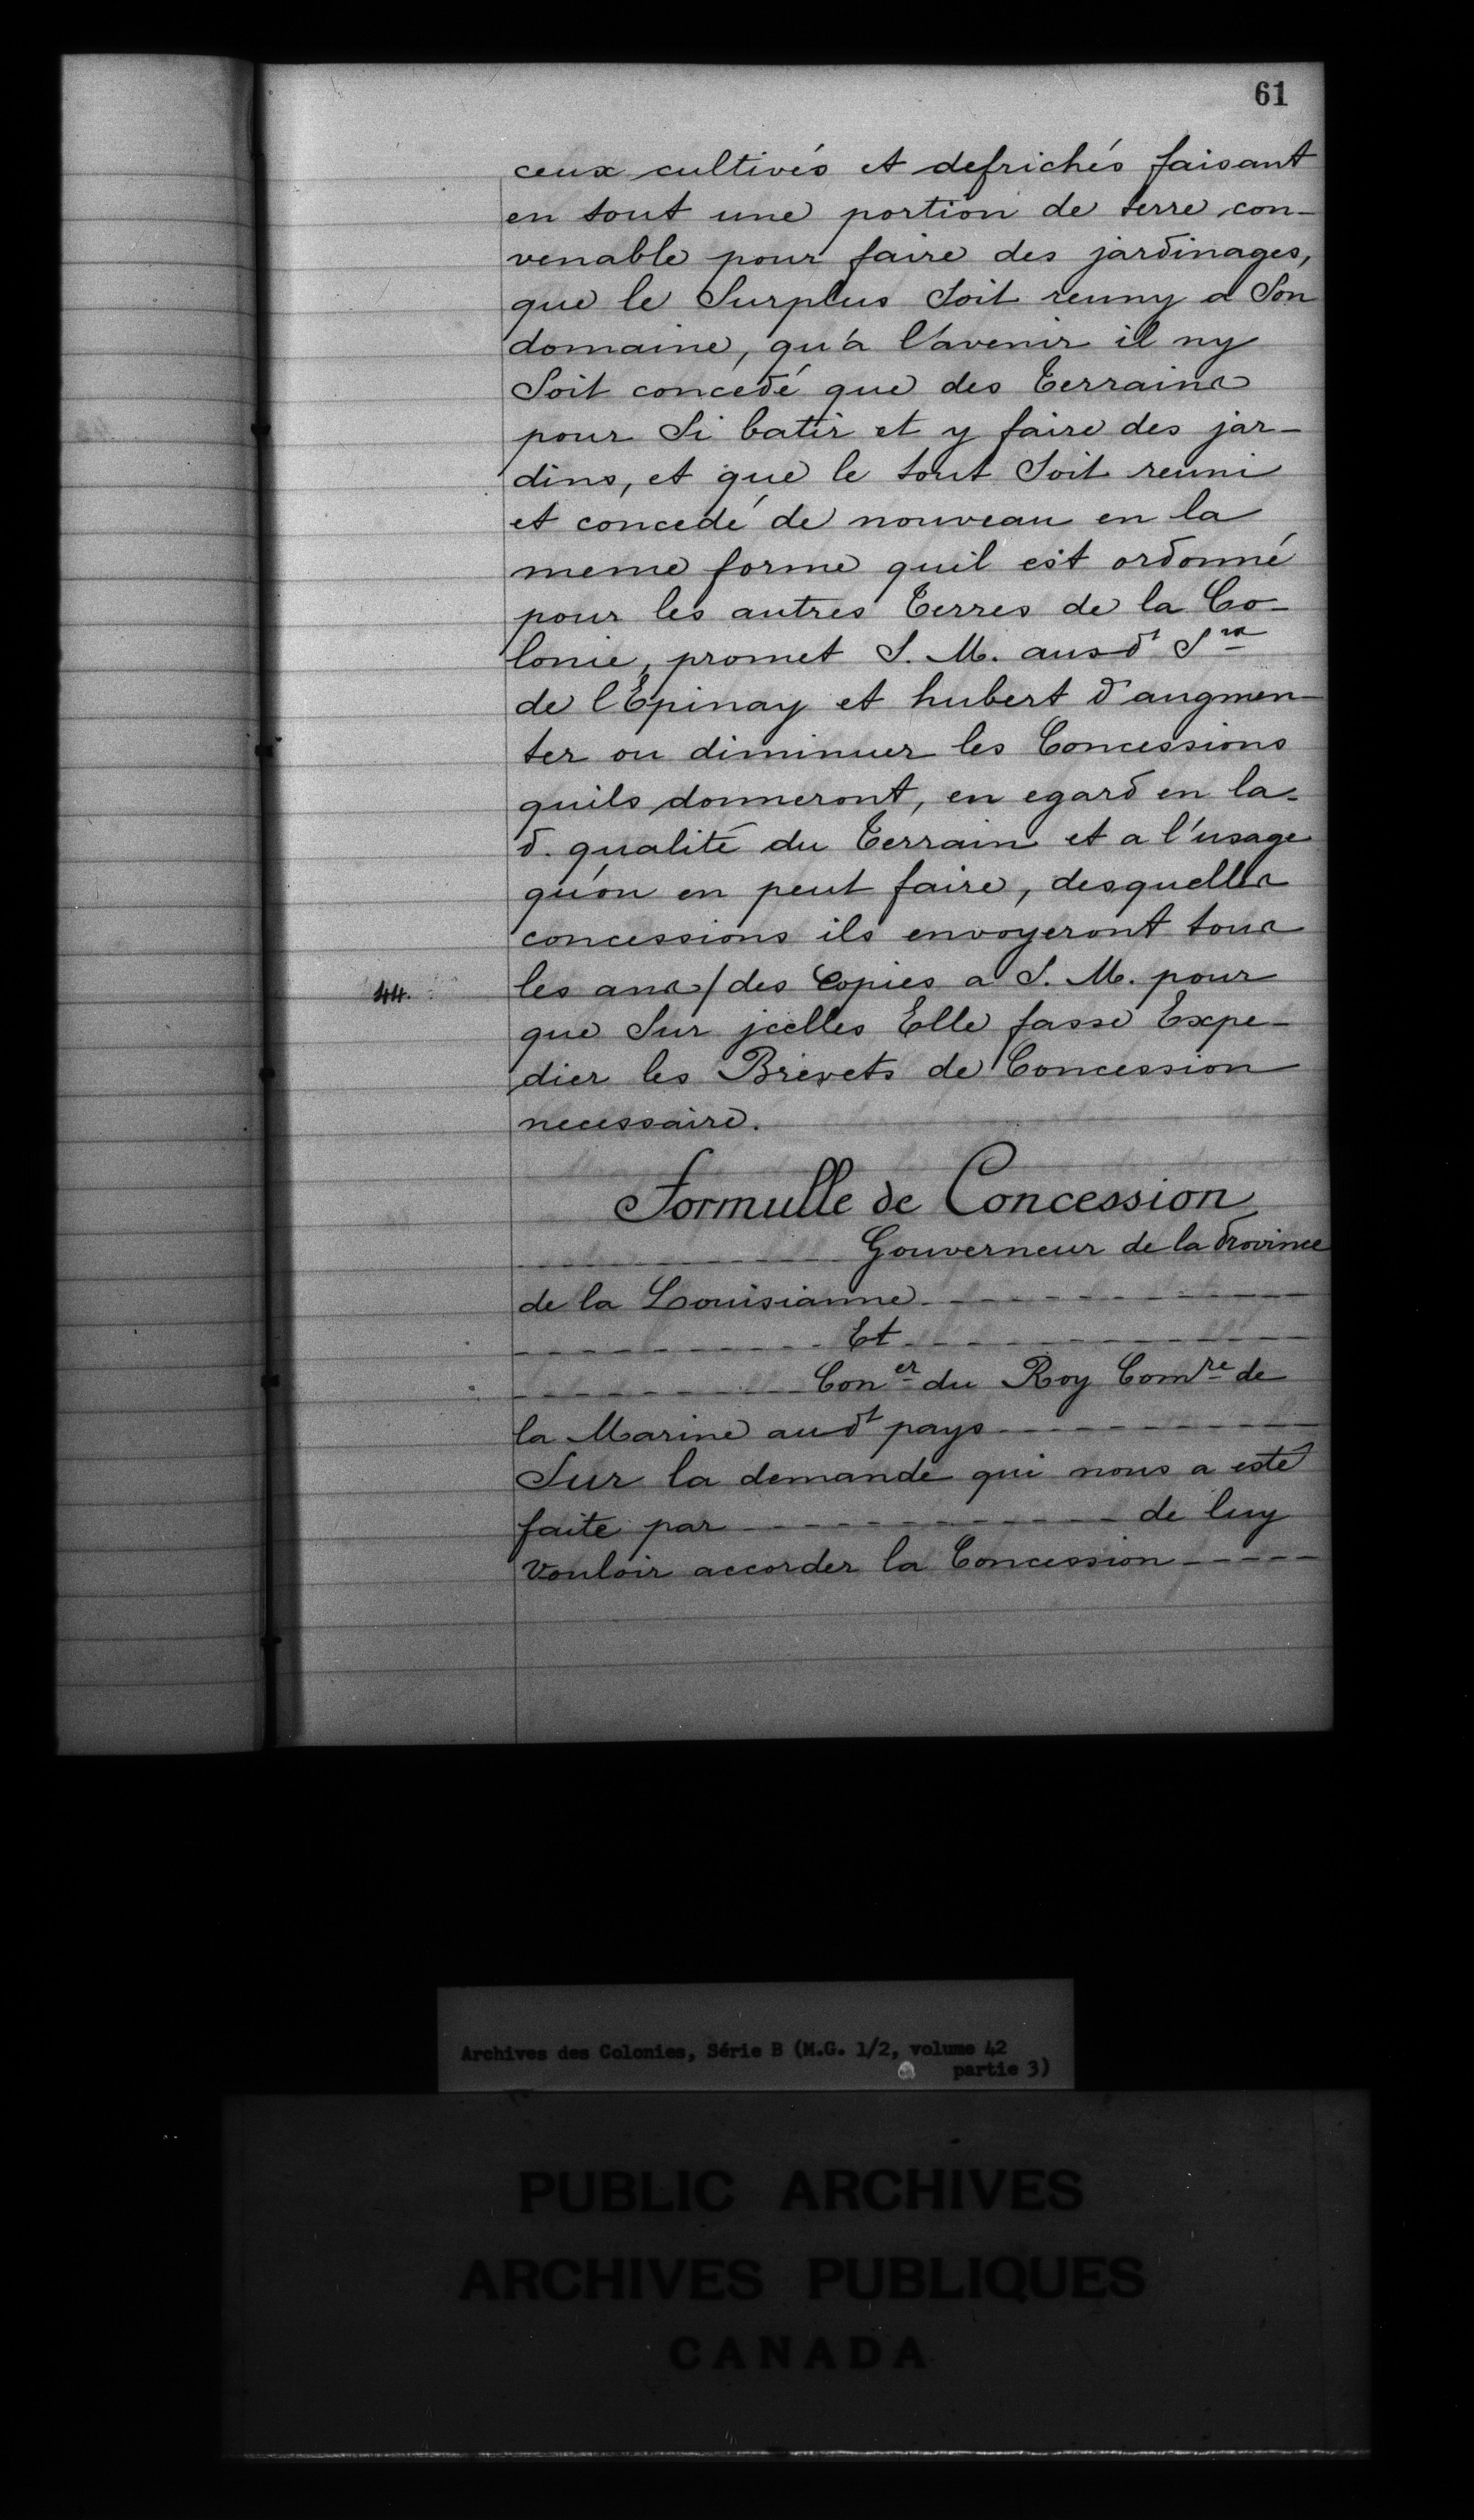 61
ceux cultivés et defrichés faisant
en tout une portion de terre con-
venable pour faire des jardinages,
que le Surplus Soit reuny a Son
domaine, qu'à l'avenir il ny
Soit concedé que des terrains
pour Si batir et y faire des jar-
dins, et que le tout Soit reuni
et concedé de nouveau en la
meme forme quil est ordonné
pour les autres terres de la Co-
lonie, promet S. M. ausdt Srs
de l'Epinay et hubert d'augmen-
ter ou diminuer les Concessions
quils donneront, en egard en la-
d. qualité du terrain et a l'usage
qu'on en peut faire, desquelles
concessions ils envoyeront tous
44. les ans / des Copies a S. M. pour
que Sur jcelles Elle fasse Expe-
dier les Brevets de Concession
necessaire.
Formulle de Concession
Gouverneur de la Province
de la Louisianne
Et
Coner du Roy Comre de
la Marine audt pays
Sur la demande qui nous a esté
faite par de luy
Vouloir accorder la Concession
Archives des Colonies, Série B (M.G. 1/2, volume 42
partie 3)
PUBLIC ARCHIVES
ARCHIVES PUBLIQUES
CANADA